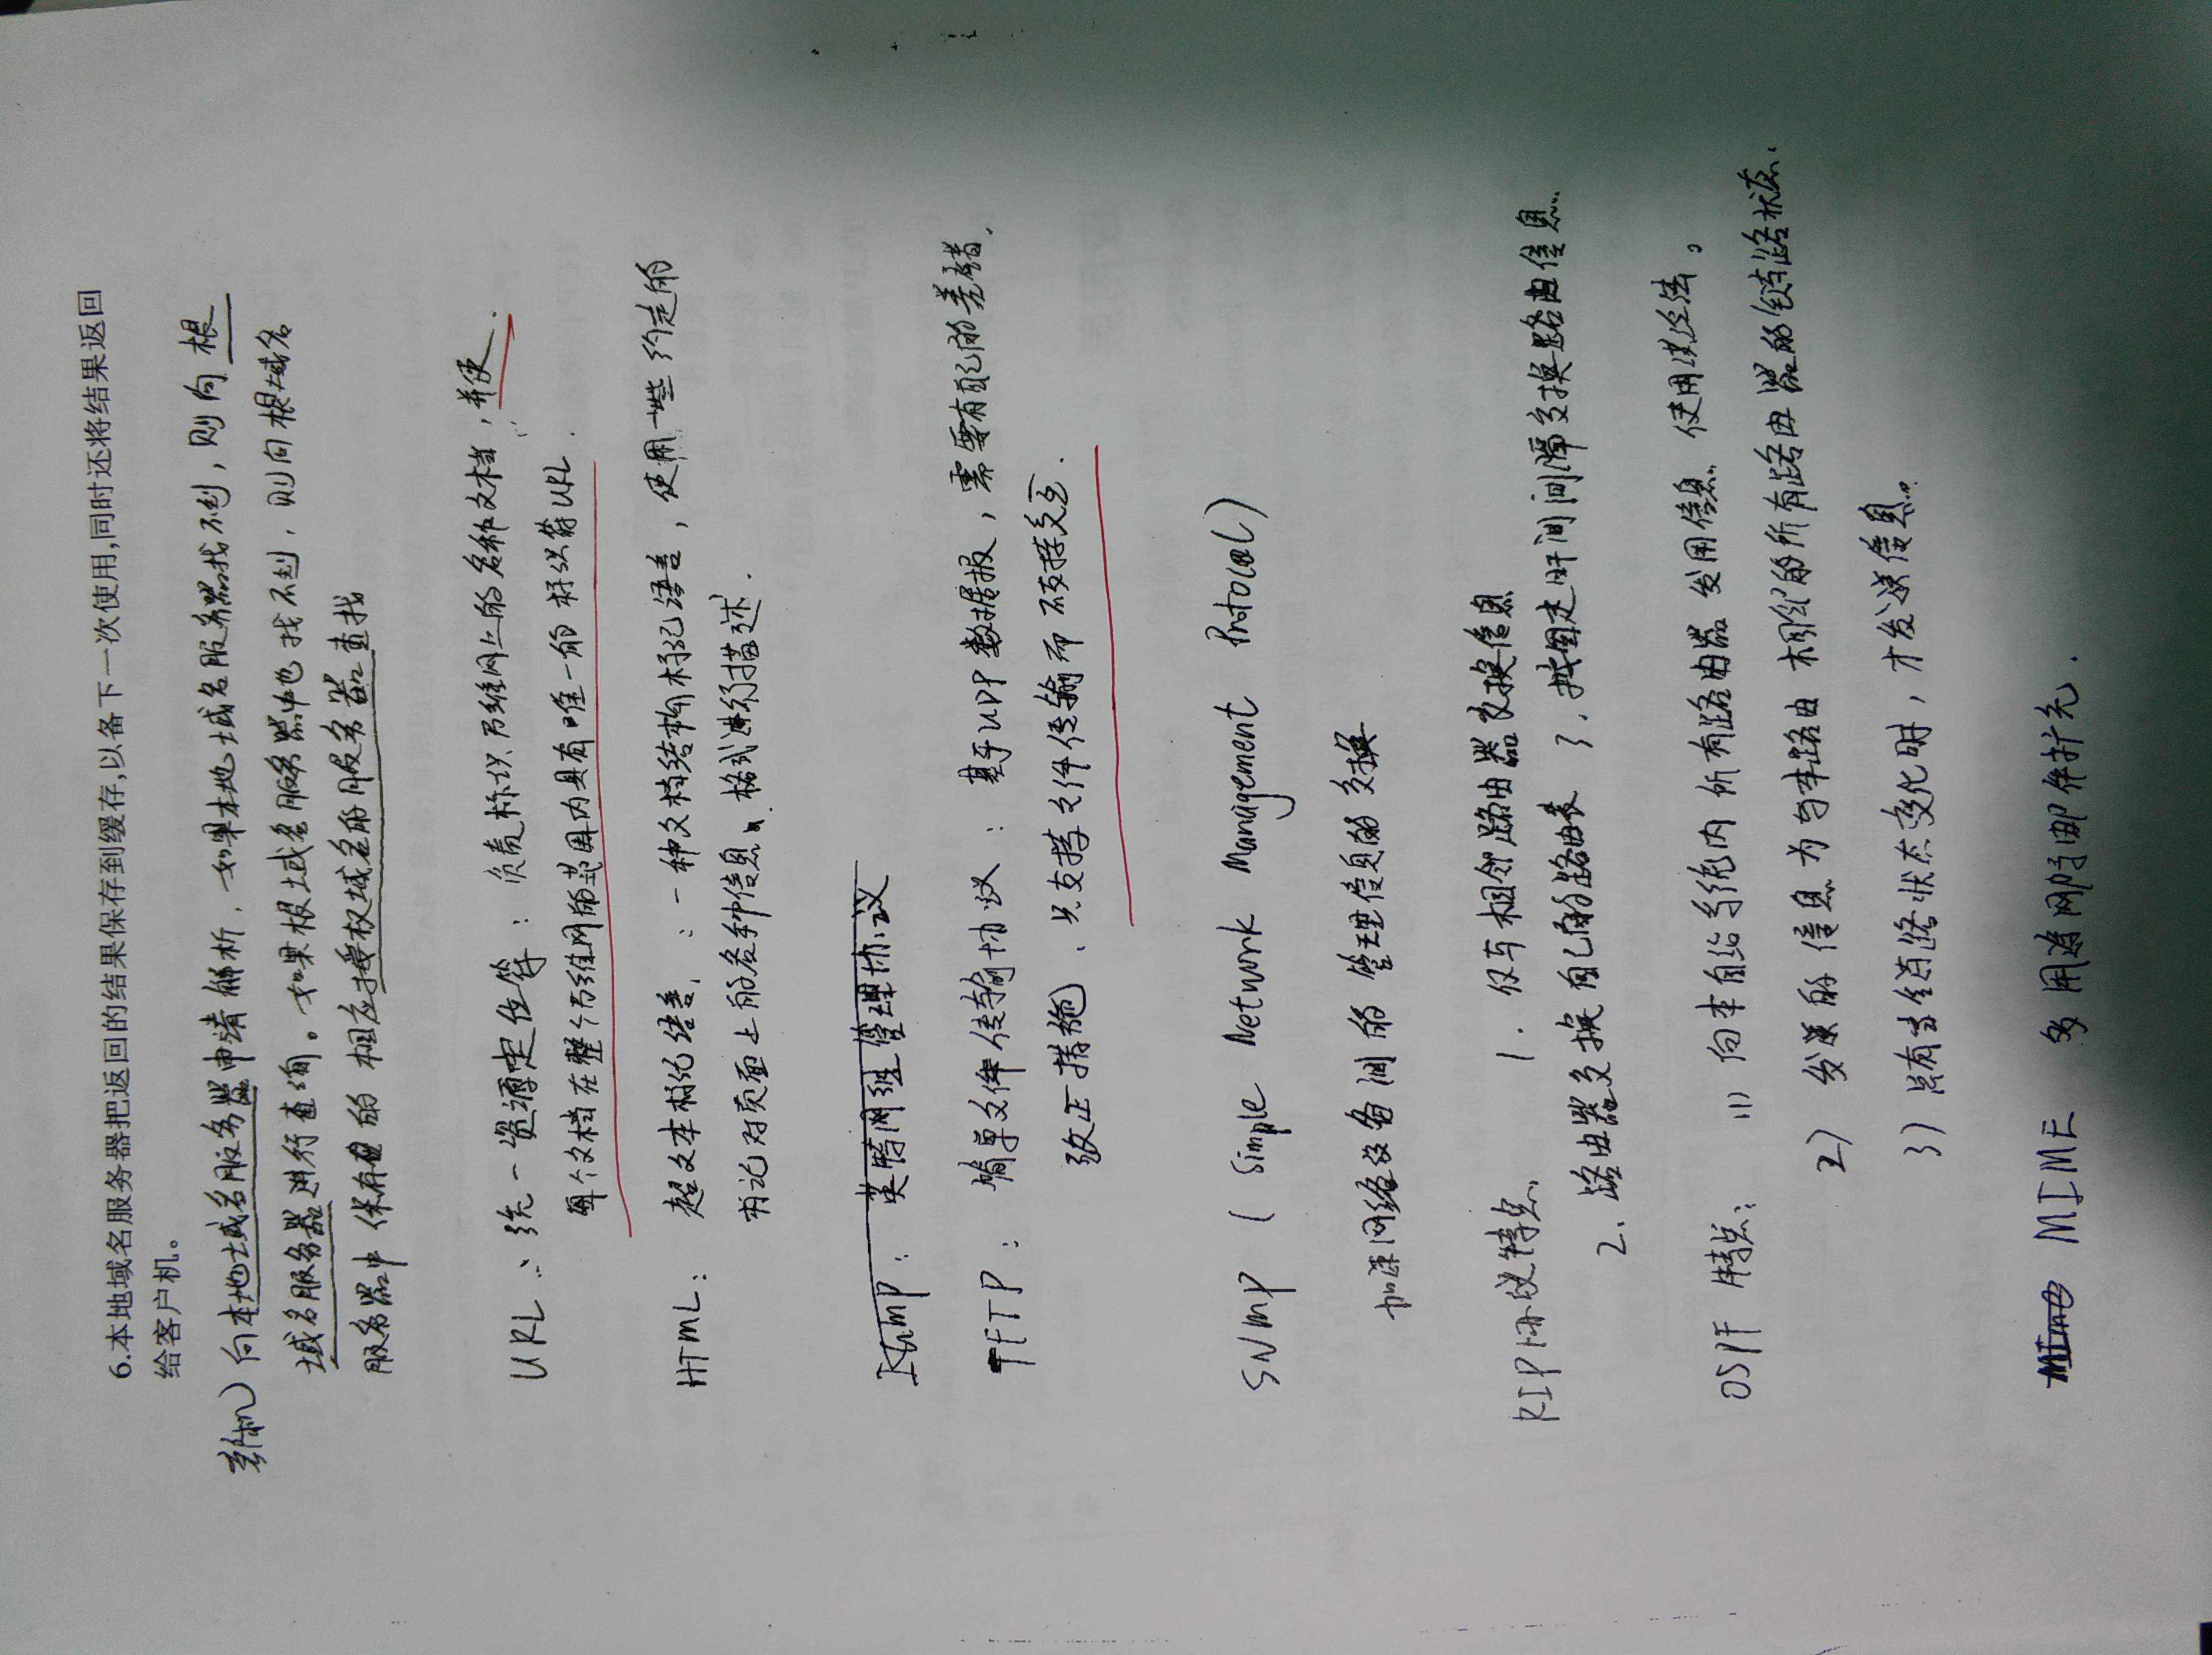 6.本地域名服务器把返回的结果保存到缓存,以备下一次使用,同时还将结果返回
给客户机。
向本地域名服务器申请解析，如果本地域名服务器找不到，则向根
域名服务器进行查询。如果根域名服务器中也找不到，则向根域名
服务器中保存的相应授权域名的服务器查找
URL：统一资源定位符：负责标识万维网上的各种文档，并使
每个文档在整个万维网的范围内具有唯一的标识符URL.
HTML：超文本标记语言：一种文档结构标记语言，使用一些约定的
标记对页面上的各种信息、格式进行描述.
IGMP：英特网组管理协议
TFTP：简单文件传输协议：基于UDP数据报，需要有自己的差错
改正措施、只支持文件传输而不支持交互.
SNMP (Simple Network Management Protocol)
加速网络设备间的管理信息的交换
RIP协议特点 1. 仅与相邻路由器交换信息
2. 路由器交换自己的路由表 3. 按固定时间间隔交换路由信息.
OSPF特点：(1) 向本自治系统内所有路由器发用信息. 使用洪泛法。
2) 发送的信息为与本路由相邻的所有路由器的链路状态.
3) 只有当链路状态变化时，才发送信息。
MIME MIME 多用途网际邮件扩充.